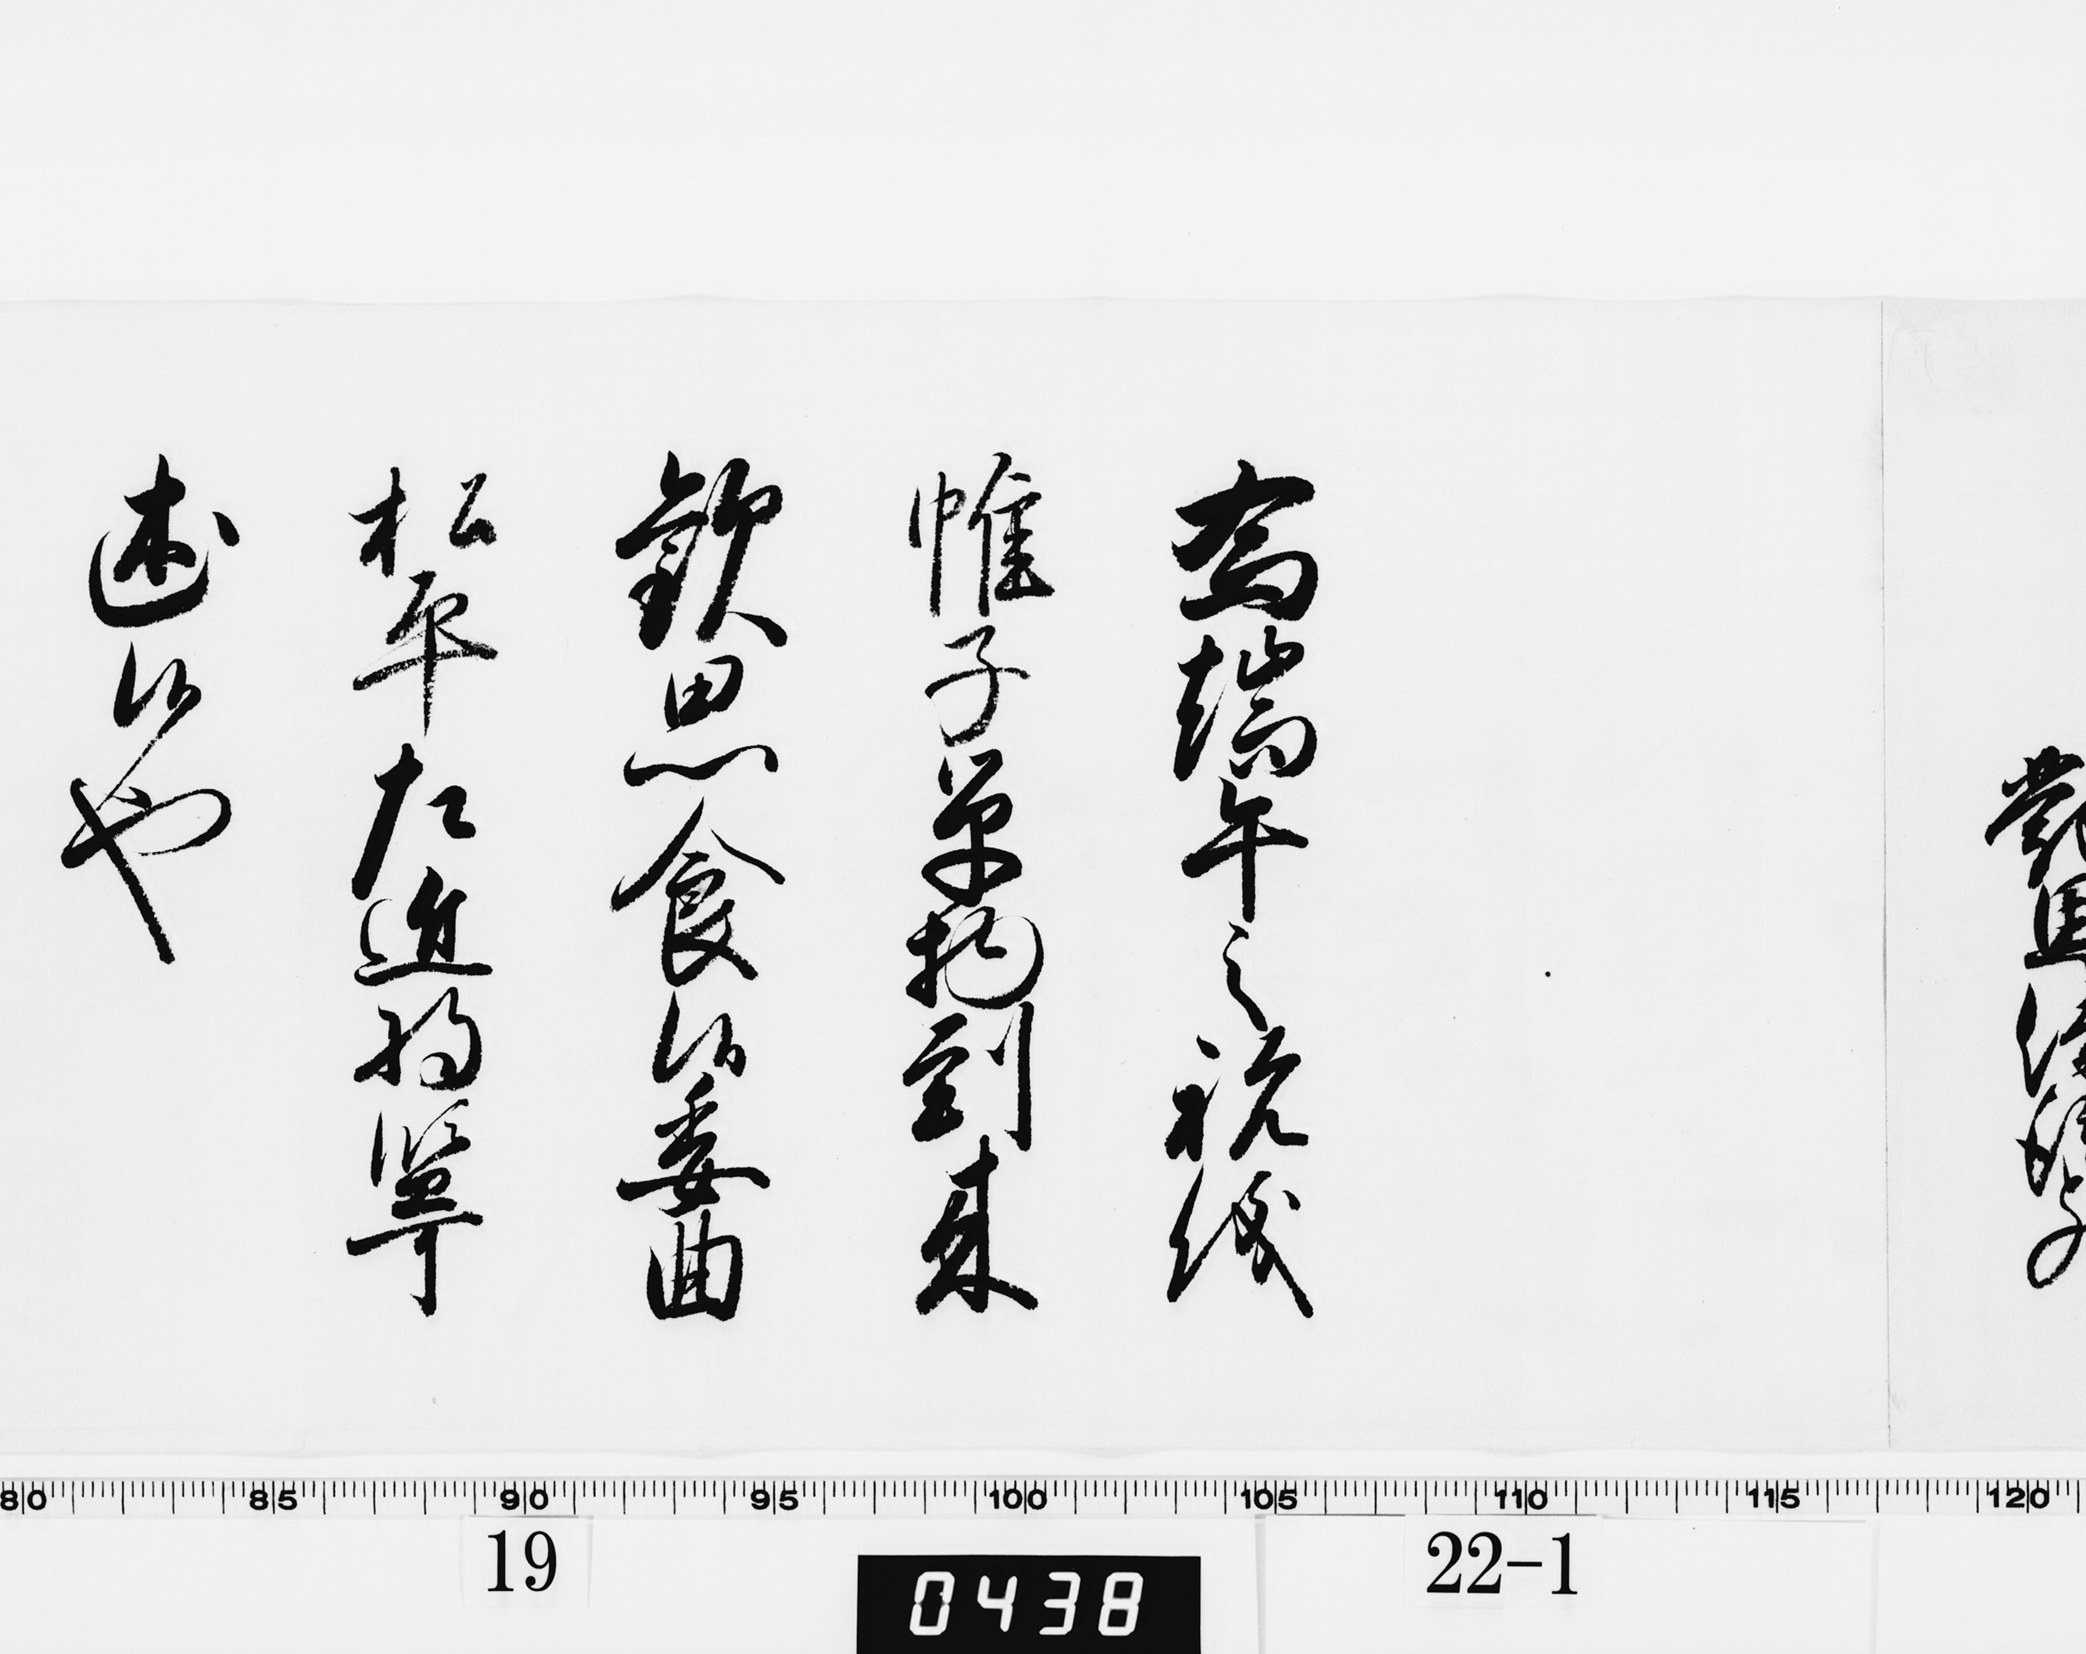 為端午之祝儀
帷子単物到来
歓思食候委曲
松平左近将監可
述候也
80 85 90 95 100 105 110 115 120
19
0438
22-1